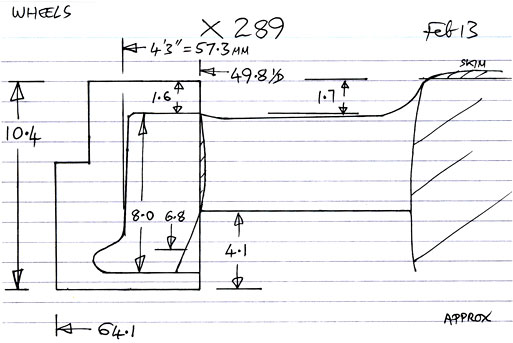 WHEELS
X 289
Feb 13
4'3" = 57.3 MM
49.8 I/D
SKIM
1.6
1.7
10.4
8.0
6.8
4.1
64.1
APPROX